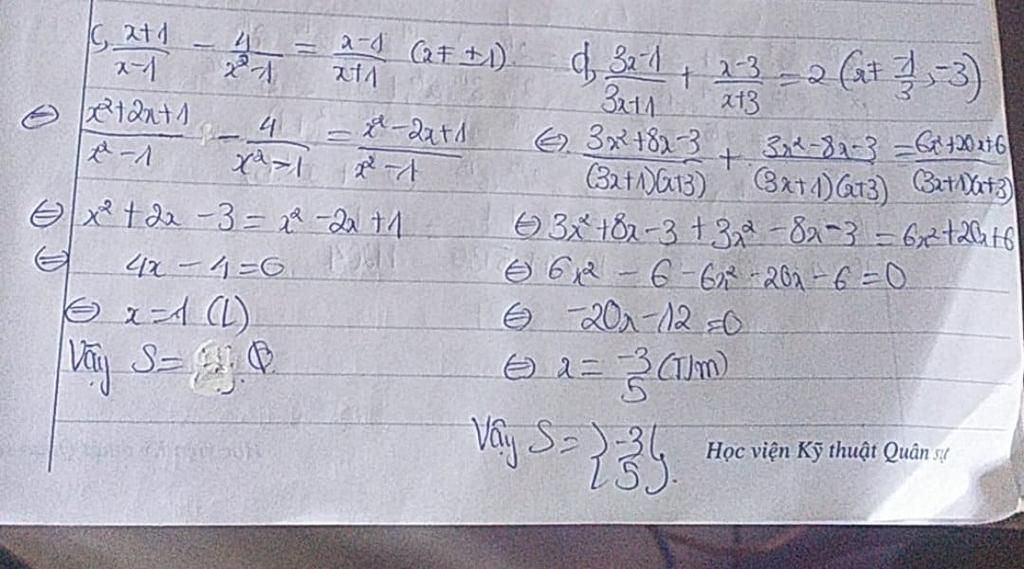 c, \frac{x+1}{x-1} - \frac{4}{x²-1} = \frac{x-1}{x+1} (x ≠ ±1)
⇔ \frac{x²+2x+1}{x²-1} - \frac{4}{x²-1} = \frac{x²-2x+1}{x²-1}
⇔ x²+2x-3 = x²-2x+1
⇔ 4x-4=0
⇔ x=1 (L)
Vậy S= Φ.
d, \frac{3x-1}{3x+1} + \frac{x-3}{x+3} = 2 (x ≠ \frac{-1}{3}, -3)
⇔ \frac{3x²+8x-3}{(3x+1)(x+3)} + \frac{3x²-8x-3}{(3x+1)(x+3)} = \frac{6x²+20x+6}{(3x+1)(x+3)}
⇔ 3x²+8x-3+3x²-8x-3 = 6x²+20x+6
⇔ 6x²-6-6x²-20x-6=0
⇔ -20x-12=0
⇔ x = \frac{-3}{5} (T/m)
Vậy S = {\frac{-3}{5}}.
Học viện Kỹ thuật Quân sự